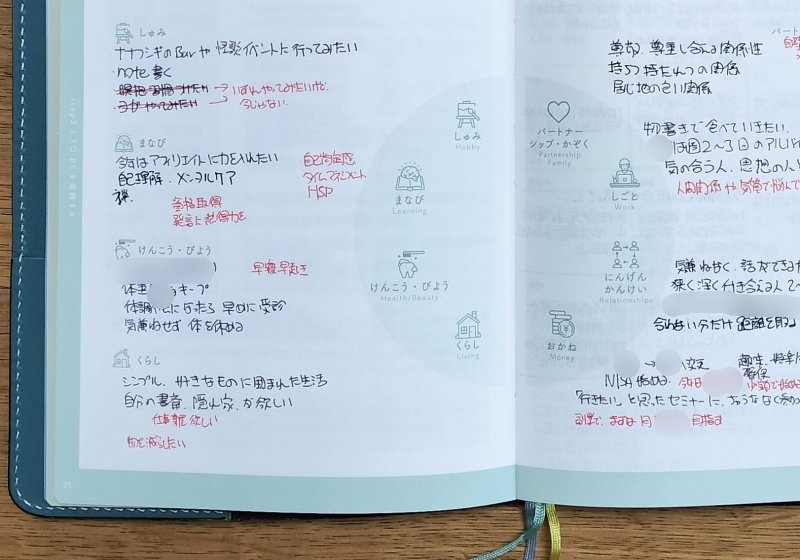 しゅみ
ナナフシギのBarや怪談イベントに行ってみたい
・note書く
ヨガやってみたい
今じゃない
まなび
今はアフィリエイトに力を入れたい
自己理解．メンタルケア
裸
自己肯定感
タイムマネジメント
HSP
資格取得
発言に説得力を
けんこう・びよう
早寝早起き
キープ
になったら 早めに受診
気兼ねせず 体を休める
くらし
シンプル．好きなものに囲まれた生活
自分の書斎．隠れ家．が欲しい
仕事部屋欲しい
物を減らしたい
25
しゅみ
Hobby
まなび
Learning
けんこう・びよう
Health/Beauty
くらし
Living
パートナー
シップ・かぞく
Partnership
Family
しごと
Work
にんげん
かんけい
Relationships
おかね
Money
尊敬．尊重し合える関係性
持ちつ持たれつの関係
居心地の良い関係
物書きで食べていきたい．
は週2〜3日のアルバイ
気の合う人．思想の人
人間関係や気質で悩んで
気兼ねなく．話ができる
狭く深く付き合える人
合わない分だけ 距離を取る
→ 安定
NISA始める．今日
「行きたい」と思ったセミナーに、ちゅうちょなく参
副業で、まずは月 目指す